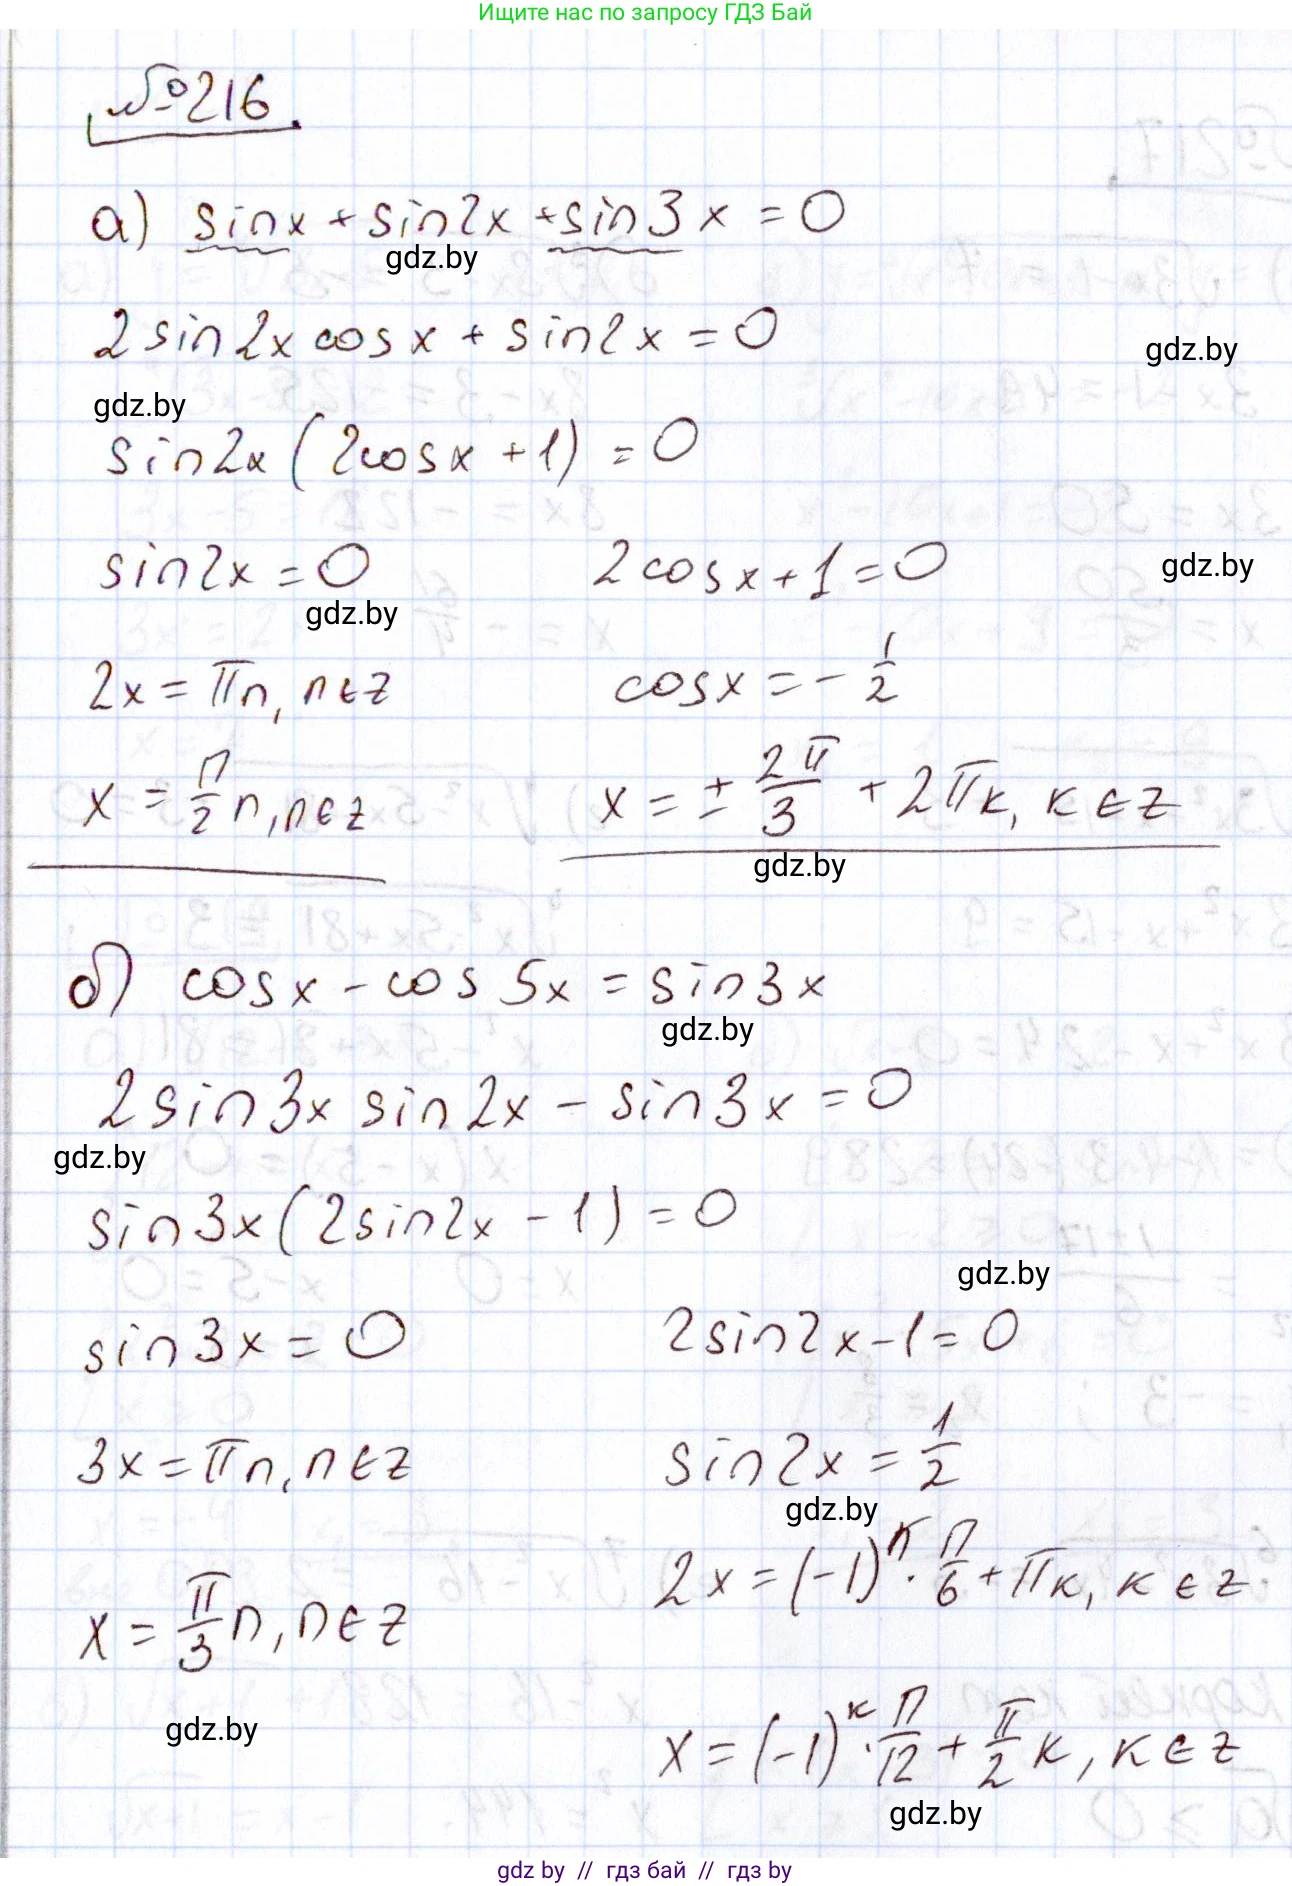 Ищите нас по запросу ГДЗ Бай
№216
а) sinx + sin2x + sin3x = 0
gdz.by
2sin2x cosx + sin2x = 0
gdz.by
gdz.by
sin2x (2cosx + 1) = 0
sin2x = 0 2cosx + 1 = 0
gdz.by
gdz.by
2x = πn, n∈z cosx = - 1/2
x = π/2 n, n∈z x = ± 2π/3 + 2πк, к∈z
gdz.by
б) cosx - cos 5x = sin3x
gdz.by
2sin3x sin2x - sin3x = 0
gdz.by
sin3x (2sin2x - 1) = 0
gdz.by
sin3x = 0 2sin2x - 1 = 0
3x = πn, n∈z sin2x = 1/2
gdz.by
x = π/3 n, n∈z 2x = (-1)^к · π/6 + πк, к∈z.
gdz.by
x = (-1)^к · π/12 + π/2 к, к∈z
gdz.by
gdz by // гдз бай // гдз by